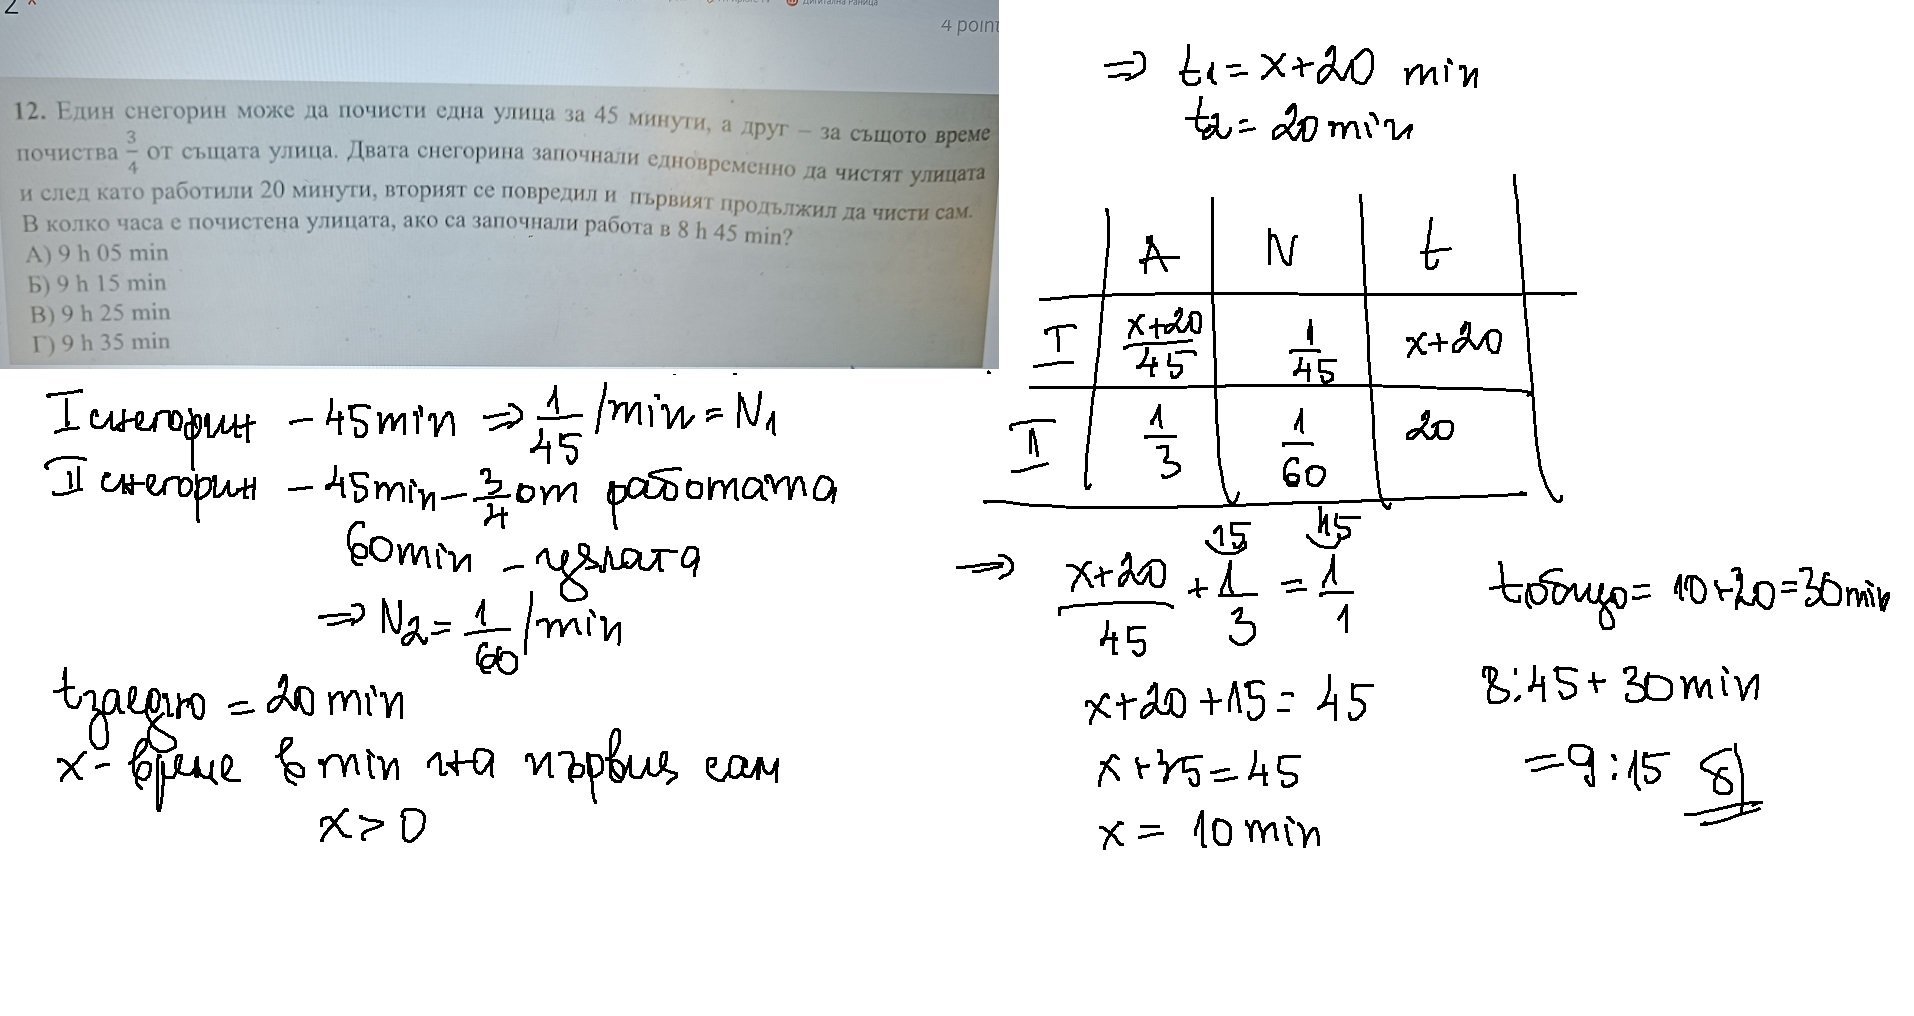 4 point
12. Един снегорин може да почисти една улица за 45 минути, а друг – за същото време
почиства 3/4 от същата улица. Двата снегорина започнали едновременно да чистят улицата
и след като работили 20 минути, вторият се повредил и първият продължил да чисти сам.
В колко часа е почистена улицата, ако са започнали работа в 8 h 45 min?
А) 9 h 05 min
Б) 9 h 15 min
В) 9 h 25 min
Г) 9 h 35 min
I снегорин – 45 min ⇒ 1/45 /min = N1
II снегорин – 45 min – 3/4 от работата
60 min – цялата
⇒ N2 = 1/60 /min
tзаедно = 20 min
x – време в min на първия сам
x > 0
⇒ t1 = x+20 min
t2 = 20 min
A N t
I x+20/45 1/45 x+20
II 1/3 1/60 20
15 45
⇒ x+20/45 + 1/3 = 1/1
x+20+15 = 45
x+35 = 45
x = 10 min
tобщо = 10+20 = 30 min
8:45 + 30 min
= 9:15 Б)